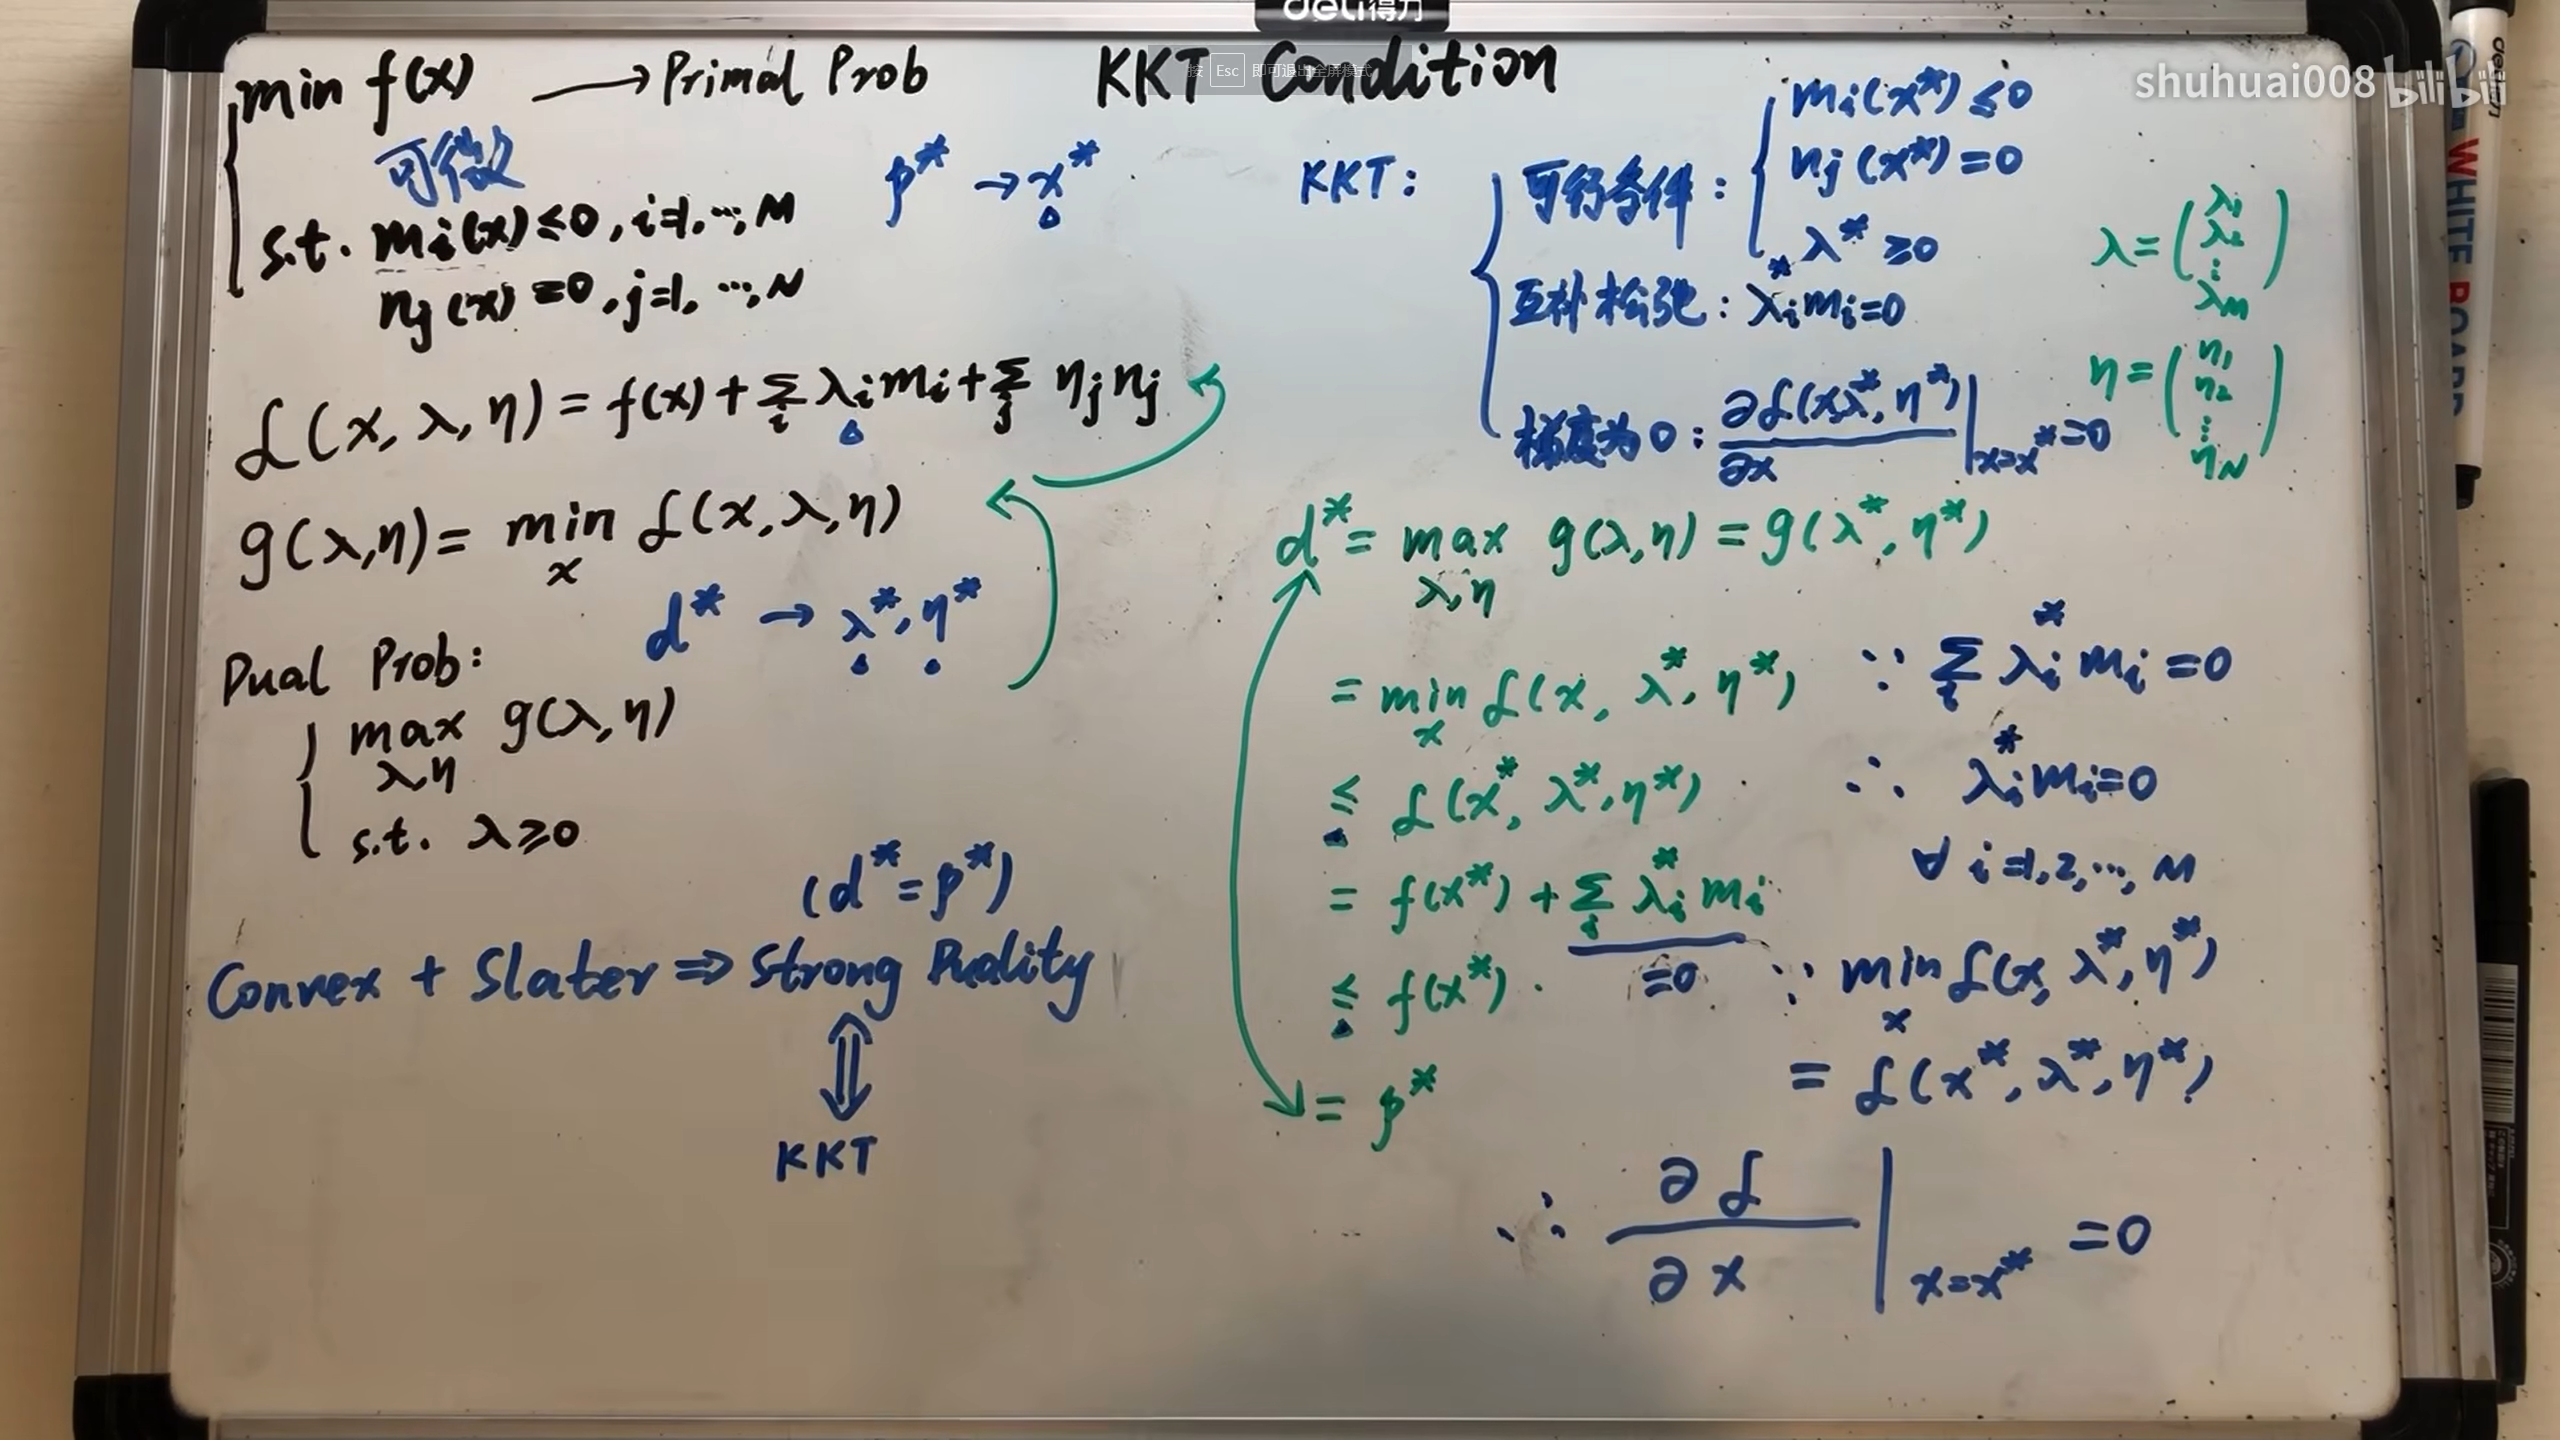 deli得力
KKT Condition
按 Esc 即可退出全屏模式
shuhuai008 bilibili
min f(x) → Primal Prob
可微
s.t. mi(x)≤0, i=1, ..., M
nj(x)=0, j=1, ..., N
p* → x*
L(x, λ, η) = f(x) + Σi λi mi + Σj ηj nj
g(λ,η) = min L(x, λ, η)
x
d* → λ*, η*
Dual Prob:
max g(λ, η)
λ,η
s.t. λ≥0
(d*=p*)
Convex + Slater ⇒ Strong Duality
⇕
KKT
KKT:
可行条件: mi(x*)≤0
nj(x*)=0
λ*≥0
互补松弛: λi* mi=0
梯度为0: ∂L(x,λ*,η*)/∂x |x=x* =0
λ = (λ1 λ2 ⋮ λM)
η = (η1 η2 ⋮ ηN)
d* = max g(λ,η) = g(λ*, η*)
λ,η
= min L(x, λ*, η*)
x
≤ L(x*, λ*, η*)
= f(x*) + Σi λi* mi
=0
≤ f(x*).
= p*
∵ Σi λi* mi = 0
∴ λi* mi=0
∀ i=1,2,..., M
∵ min L(x, λ*, η*)
x
= L(x*, λ*, η*)
∴ ∂L/∂x |x=x* =0
WHITE BOARD
deli